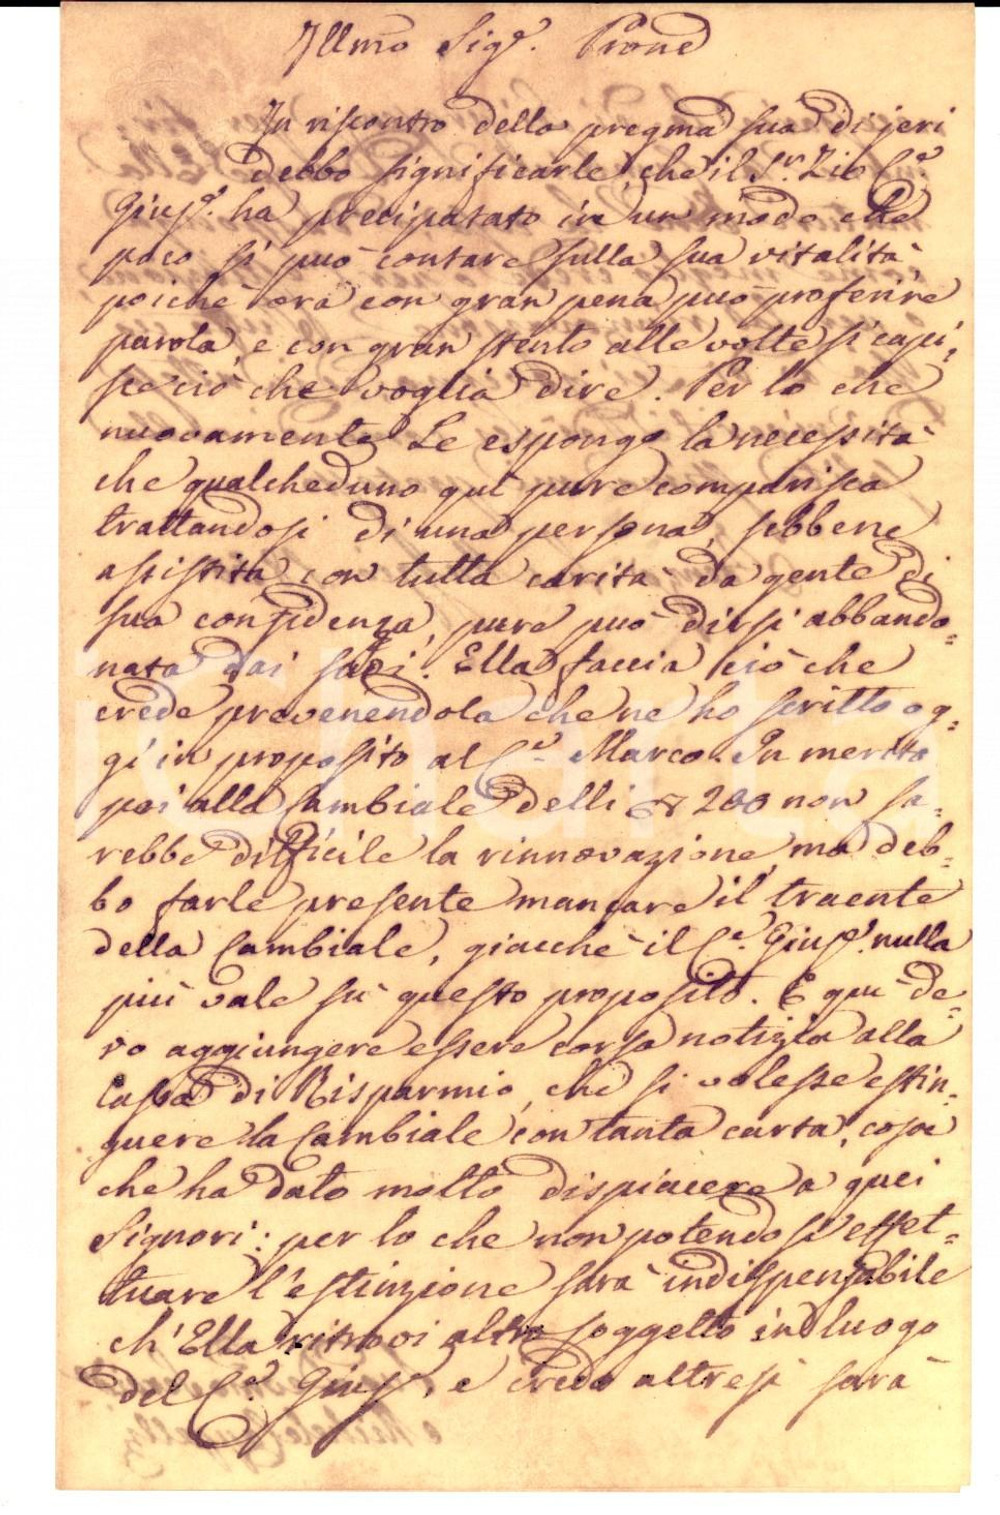 Illmo Sigr. Prone
In riscontro della pregma sua di jeri
debbo significarle, che il Sr. Zio Ce.
Giuse. ha precipatato in un modo che
poco si può contare sulla sua vitalità
poichè ora con gran pena può proferire
parola, e con gran stento alle volte si capi,
sce ciò che voglia dire. Per lo che
nuovamente Le espongo la necessità
che qualcheduno qui pure comparisca
trattandosi di una persona, sebbene
assistita con tutta carità da gente di
sua confidenza, pure può dirsi abbando=
nata dai suoi. Ella faccia ciò che
crede prevenendola che ne ho scritto og=
gi in proposito al Ce. Marco. In merito
poi alla Cambiale delli 200 non sa=
rebbe difficile la rinnovazione, ma deb=
bo farle presente mancare il traente
della Cambiale, giacchè il Ce. Giuse. nulla
più vale su questo proposito. E qui de=
vo aggiungere essere corsa notizia alla
Cassa di Risparmio, che si volesse estin=
guere la Cambiale con tanta carta, cosa
che ha dato molto dispiacere a quei
Signori: per lo che non potendosi effet=
tuare l'estinzione sarà indispensabile
ch'Ella ritrovi altro soggetto in luogo
del Ce. Giuse., e credo altresì sarà